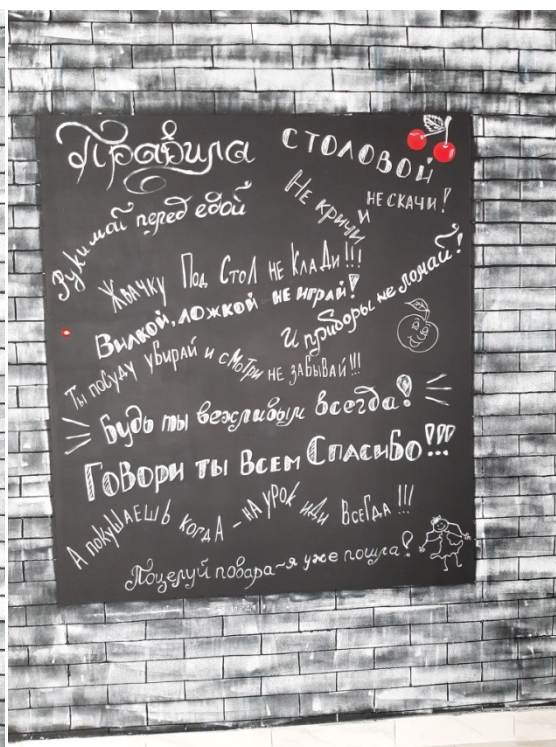 Правила столовой
Руки мой перед едой
Не кричи и не скачи!
Жвачку Под Стол не Клади!!!
Вилкой, ложкой не играй!
И приборы не ломай!
Ты посуду убирай и смотри не забывай!!!
Будь ты вежливым всегда!
Говори ты Всем Спасибо!!!
А покушаешь когда - на урок иди всегда!!!
Поцелуй повара - я уже пошла!